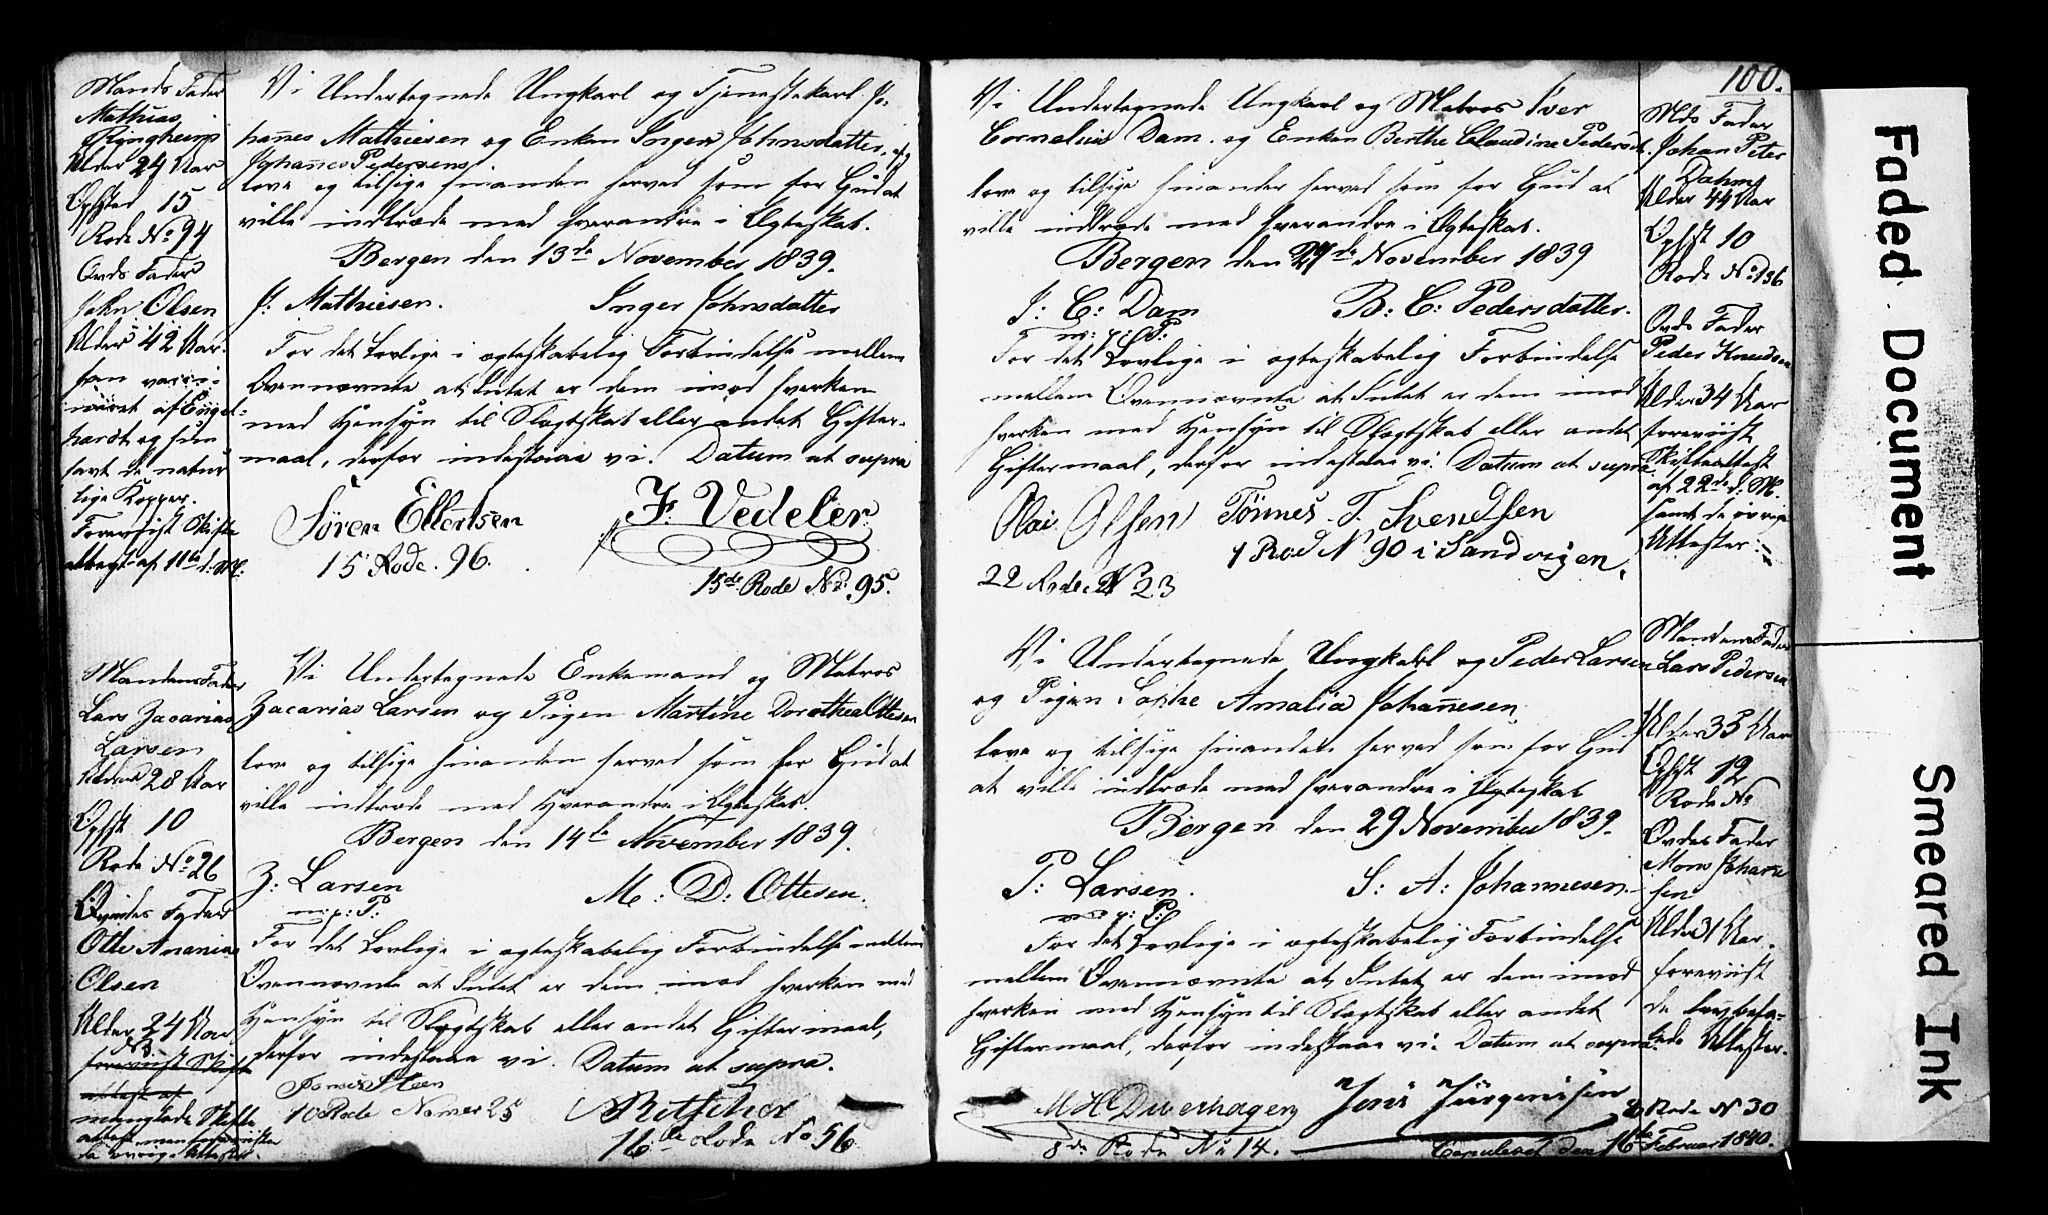 Mands Fader
Mathias
Ringheim
Alder 29 Aar
Opsted 15
Rode No 94
Qvds Fader
John Olsen
Alder 42 Aar.
han vac̄i-
nēret af Engel-
hardt og hun
havt de natur
lige Kopper.
Foreviist Skifte
attest af 11te d: M:
Vi Undertegnede Ungkarl og Tjenestekarl Jo-
han̄es Mathiesen og Enken Inger Johnsdatter, af
Johan̄es Pedersens
love og tilsige hinanden herved som for Gud at
ville indtræde med hverandre i Ægteskab.
Bergen den 13de November 1839.
J: Mathiesen. Inger Johnsdatter
For det Lovlige i ægteskabelig Forbindelse mellem
Ovennævnte at Intet er dem imod hverken
med Hensyn til Slægtskab eller andet Gifter-
maal, derfor indestaae vi. Datum ut supra
Søren Ellertsen F. Vedeler
15 Rode. 96.
15de Rode No: 95.
Mandens Fader
Lars Zacarias
Larsen
Alder 28 Aar
Opst 10
Rode No 26
Qvindes Fader
Otte Ananias
Olsen
Alder 24 Aar
NB.
foreviist Skift
attest af
manglede Skifte
attest, men foreviiste
de øvrige Attester.
Vi Undertegnede Enkemand og Matros
Zacarias Larsen og Pigen Martine Dorothea Ottesen
love og tilsige hinanden herved som for Gud at
ville indtræde med hverandre i Ægteskab.
Bergen den 14de November 1839.
Z: Larsen M: D: Ottesen.
m: p: P:
For det Lovlige i ægteskabelig Forbindelse mellem
Ovennævnte at Intet er dem imod hverken med
Hensyn til Slægtskab eller andet Giftermaal,
derfor indestaae vi. Datum ut supra.
Steen
10 Rode Nomer 25
16de Rode No 56
100.
Vi Undertegnede Ungkarl og Matros Iver
Cornelius Dam. og Enken Berthe Claudine Pedersd.
love og tilsige hinanden herved som for Gud at
ville indtræde med hverandre i Ægteskab.
Bergen den 27de November 1839
I: C: Dam B: C: Pedersdatter.
m: p: P:
For det Lovlige i ægteskabelig Forbindelse
mellem Ovennævnte at Intet er dem imod
hverken med Hensyn til Slægtskab eller andet
Giftermaal, derfor indestaae vi. Datum ut supra
Olai Olsen Tønnes T. Svendsen
1 Rod N 90 i Sandvigen,
22 Rode N 23
Mds Fader
Johan Peter
Dahm
Alder 44 Aar
Opst 10
Rode No 136
Qvds Fader
Peder Knudsen
Alder 34 Aar
foreviist
Skifteattest
af 22de d: M.
samt de øvrige
Attester.
Vi Undertegnede Ungkarl og Peder Larsen
og Pigen Sophe Amalia Johan̄esen
love og tilsige hinanden herved som for Gud
at ville indtræde med hverandre i Ægteskab
Bergen den 29 November 1839.
P: Larsen. S: A: Johannesen.
m: p: P:
For det Lovlige i ægteskabelig Forbindelse
mellem Ovennævnte at Intet er dem imod
hverken med Hensyn til Slægtskab eller andet
Giftermaal, derfor indestaae vi. Datum ut supra.
M H Duerhagen Jens Jürgensen
8de Rode No 14.
Rode N 30
Copuleret den 16de Februar 1840.
Mandens Fader
Lars Pedersen
Alder 35 Aar
Opst 12
Rode No
Qvdes Fader
Mons Johan̄e
sen
Alder 31 Aar.
foreviist
de lovbefa-
lede Attester.
Faded Document
Smeared Ink